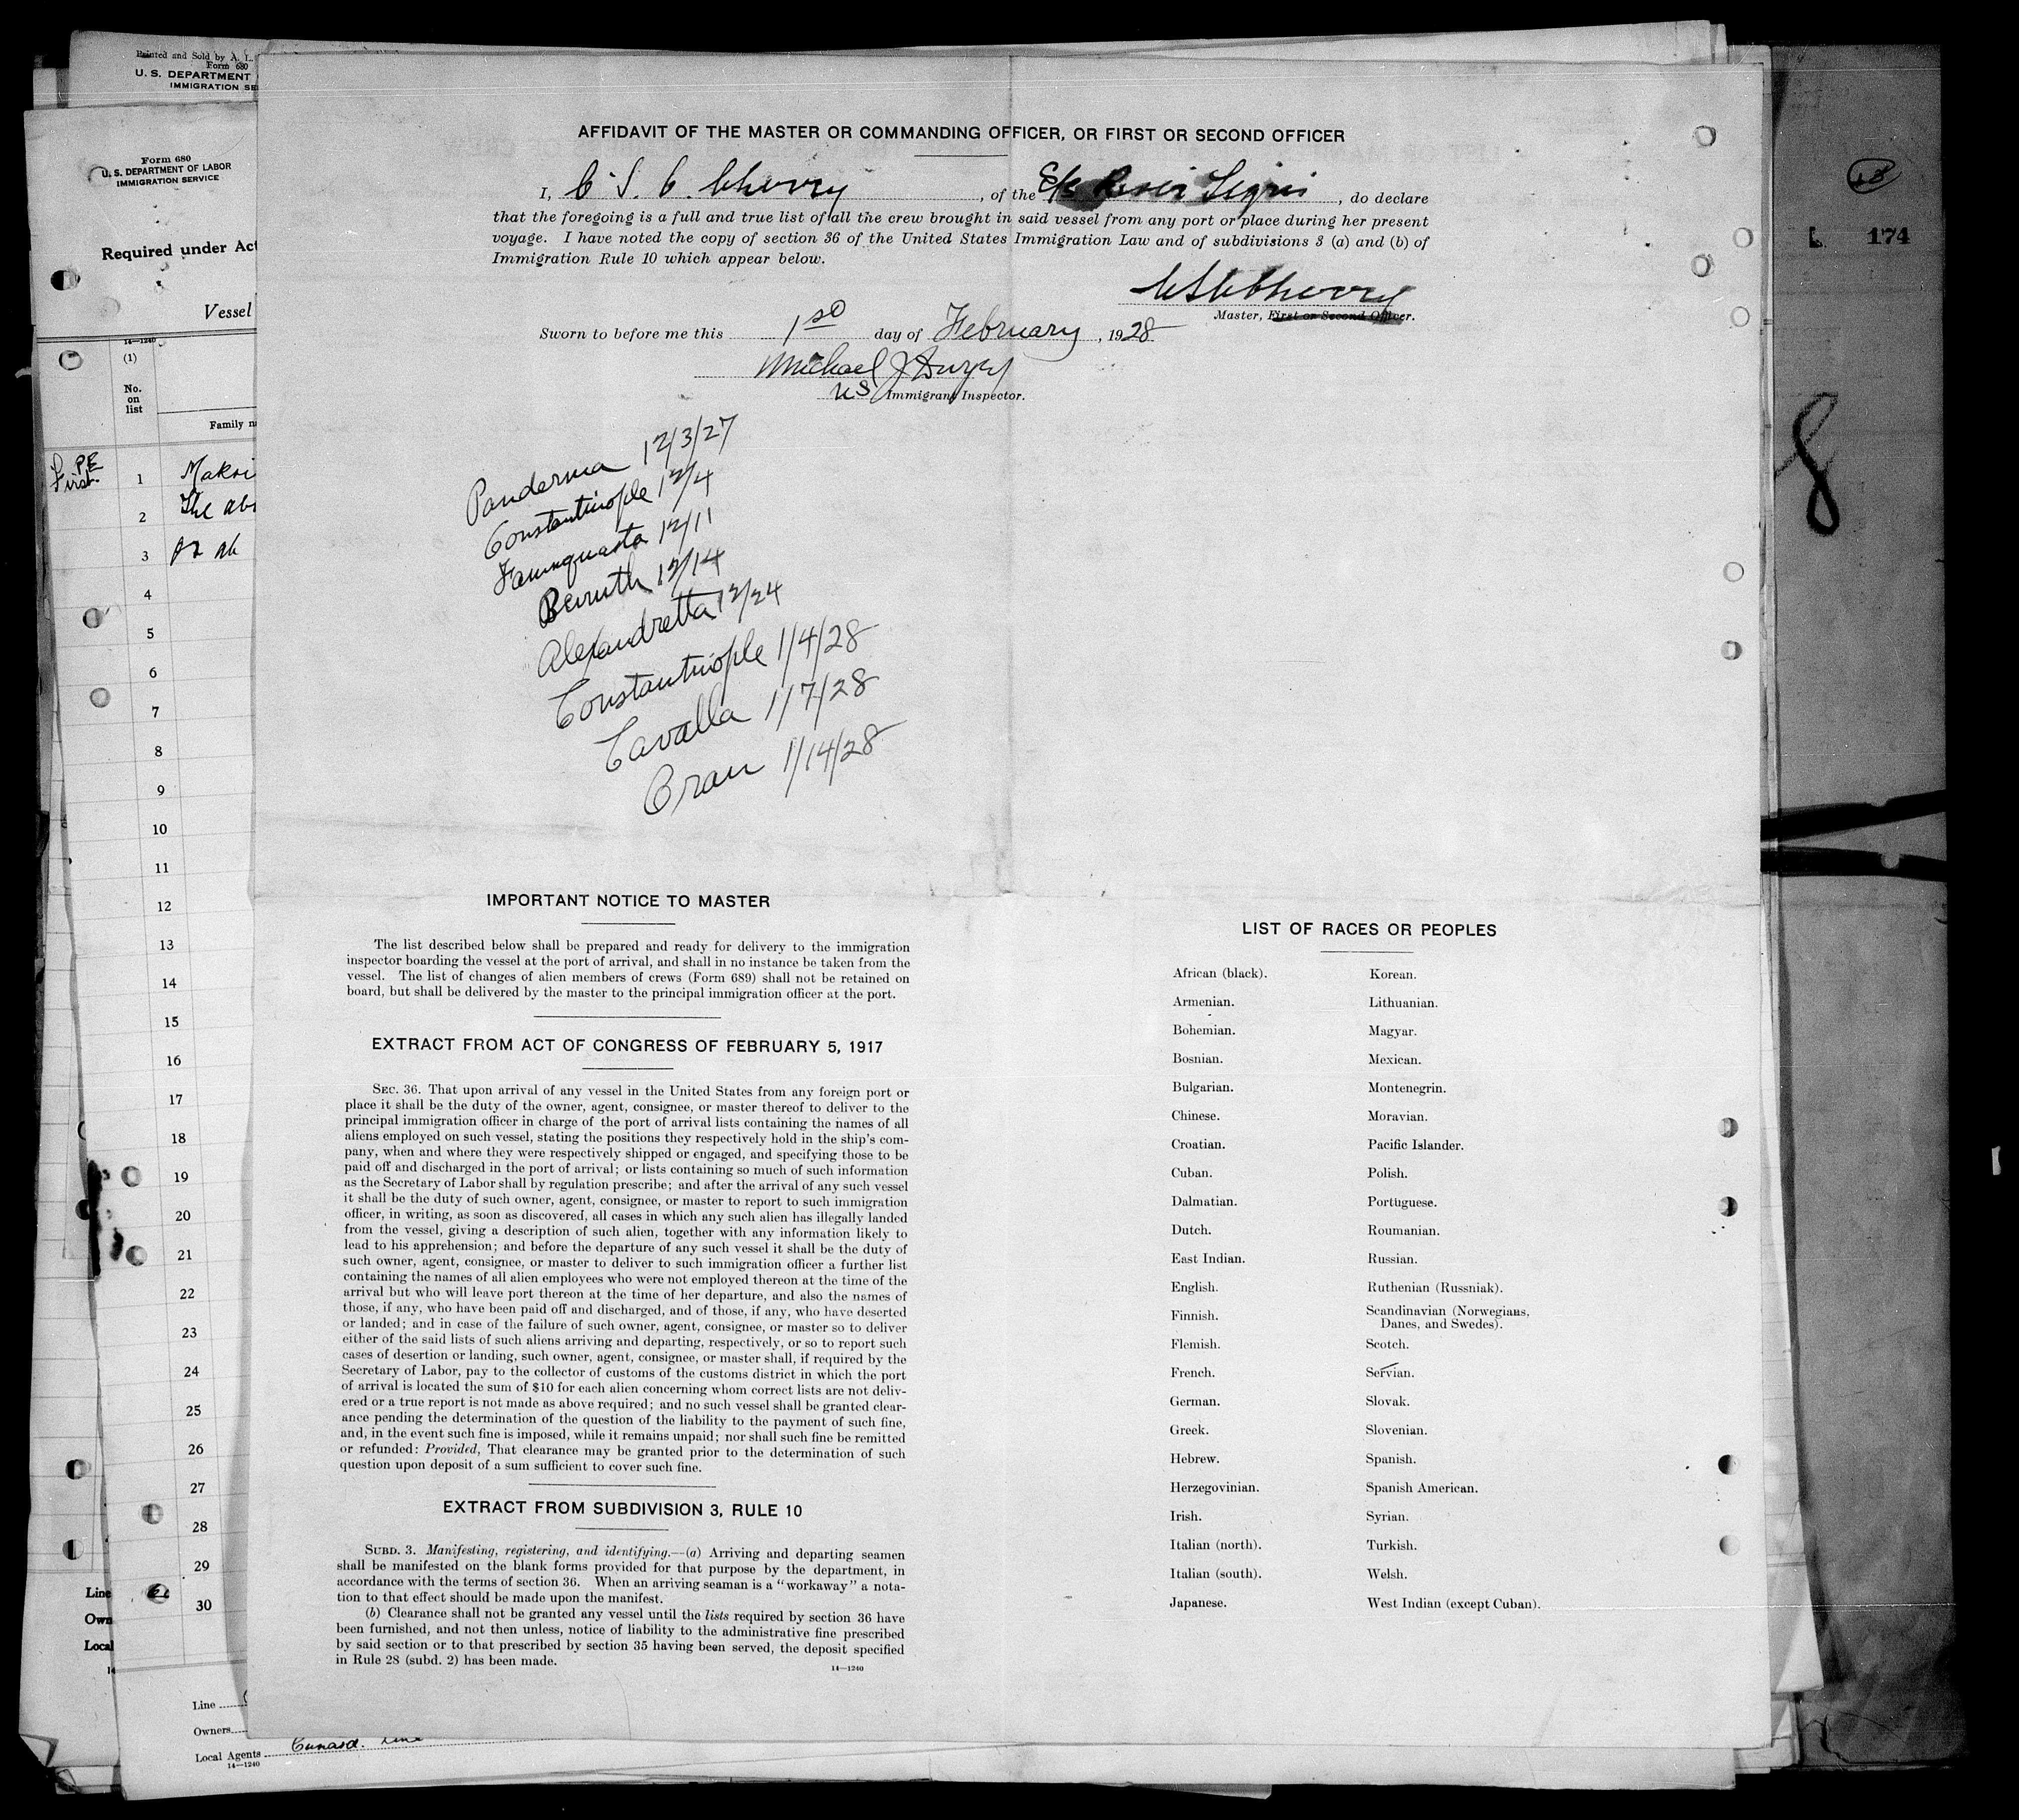 Printed and Sold by A. L.
Form 680
U. S. DEPARTMENT
IMMIGRATION SE
Form 680
U. S. DEPARTMENT OF LABOR
IMMIGRATION SERVICE
Required under Act
Vessel
14—1240
(1)
No.
on
list
Family n
P.E
First
1 Maksi
2 The ab
3
4
5
6
7
8
9
10
11
12
13
14
15
16
17
18
19
20
21
22
23
24
25
26
27
28
29
30
Line
Own
Local
14
Line
Owners
Local Agents Cunard Line
14—1240
AFFIDAVIT OF THE MASTER OR COMMANDING OFFICER, OR FIRST OR SECOND OFFICER
I, C. S. C. Cherry, of the S/S River Tigris, do declare
that the foregoing is a full and true list of all the crew brought in said vessel from any port or place during her present
voyage. I have noted the copy of section 36 of the United States Immigration Law and of subdivisions 3 (a) and (b) of
Immigration Rule 10 which appear below.
CSCCherry
Master, First or Second Officer.
Sworn to before me this 1st day of February, 1928
Michael J Dwyer
US Immigrant Inspector.
Panderma 12/3/27
Constantinople 12/4
Famagusta 12/11
Beiruth 12/14
Alexandretta 12/24
Constantinople 1/4/28
Cavalla 1/7/28
Oran 1/14/28
IMPORTANT NOTICE TO MASTER
The list described below shall be prepared and ready for delivery to the immigration
inspector boarding the vessel at the port of arrival, and shall in no instance be taken from the
vessel. The list of changes of alien members of crews (Form 689) shall not be retained on
board, but shall be delivered by the master to the principal immigration officer at the port.
EXTRACT FROM ACT OF CONGRESS OF FEBRUARY 5, 1917
SEC. 36. That upon arrival of any vessel in the United States from any foreign port or
place it shall be the duty of the owner, agent, consignee, or master thereof to deliver to the
principal immigration officer in charge of the port of arrival lists containing the names of all
aliens employed on such vessel, stating the positions they respectively hold in the ship's com-
pany, when and where they were respectively shipped or engaged, and specifying those to be
paid off and discharged in the port of arrival; or lists containing so much of such information
as the Secretary of Labor shall by regulation prescribe; and after the arrival of any such vessel
it shall be the duty of such owner, agent, consignee, or master to report to such immigration
officer, in writing, as soon as discovered, all cases in which any such alien has illegally landed
from the vessel, giving a description of such alien, together with any information likely to
lead to his apprehension; and before the departure of any such vessel it shall be the duty of
such owner, agent, consignee, or master to deliver to such immigration officer a further list
containing the names of all alien employees who were not employed thereon at the time of the
arrival but who will leave port thereon at the time of her departure, and also the names of
those, if any, who have been paid off and discharged, and of those, if any, who have deserted
or landed; and in case of the failure of such owner, agent, consignee, or master so to deliver
either of the said lists of such aliens arriving and departing, respectively, or so to report such
cases of desertion or landing, such owner, agent, consignee, or master shall, if required by the
Secretary of Labor, pay to the collector of customs of the customs district in which the port
of arrival is located the sum of $10 for each alien concerning whom correct lists are not deliv-
ered or a true report is not made as above required; and no such vessel shall be granted clear-
ance pending the determination of the question of the liability to the payment of such fine,
and, in the event such fine is imposed, while it remains unpaid; nor shall such fine be remitted
or refunded: Provided, That clearance may be granted prior to the determination of such
question upon deposit of a sum sufficient to cover such fine.
EXTRACT FROM SUBDIVISION 3, RULE 10
SUBD. 3. Manifesting, registering, and identifying.—(a) Arriving and departing seamen
shall be manifested on the blank forms provided for that purpose by the department, in
accordance with the terms of section 36. When an arriving seaman is a "workaway" a nota-
tion to that effect should be made upon the manifest.
(b) Clearance shall not be granted any vessel until the lists required by section 36 have
been furnished, and not then unless, notice of liability to the administrative fine prescribed
by said section or to that prescribed by section 35 having been served, the deposit specified
in Rule 28 (subd. 2) has been made.
14—1240
LIST OF RACES OR PEOPLES
African (black). Korean.
Armenian. Lithuanian.
Bohemian. Magyar.
Bosnian. Mexican.
Bulgarian. Montenegrin.
Chinese. Moravian.
Croatian. Pacific Islander.
Cuban. Polish.
Dalmatian. Portuguese.
Dutch. Roumanian.
East Indian. Russian.
English. Ruthenian (Russniak).
Finnish. Scandinavian (Norwegians,
Danes, and Swedes).
Flemish. Scotch.
French. Servian.
German. Slovak.
Greek. Slovenian.
Hebrew. Spanish.
Herzegovinian. Spanish American.
Irish. Syrian.
Italian (north). Turkish.
Italian (south). Welsh.
Japanese. West Indian (except Cuban).
174
8